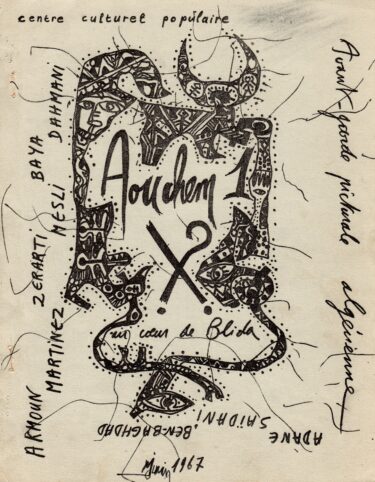 centre culturel populaire
Avant-garde picturale algérienne
ARMOUN ZERARTI BAYA DAHMANI
MARTINEZ MESLI
Aouchem 1
au cœur de Blida
ADANE
SAÏDANI
BEN-BAGHDAD
Juin 1967